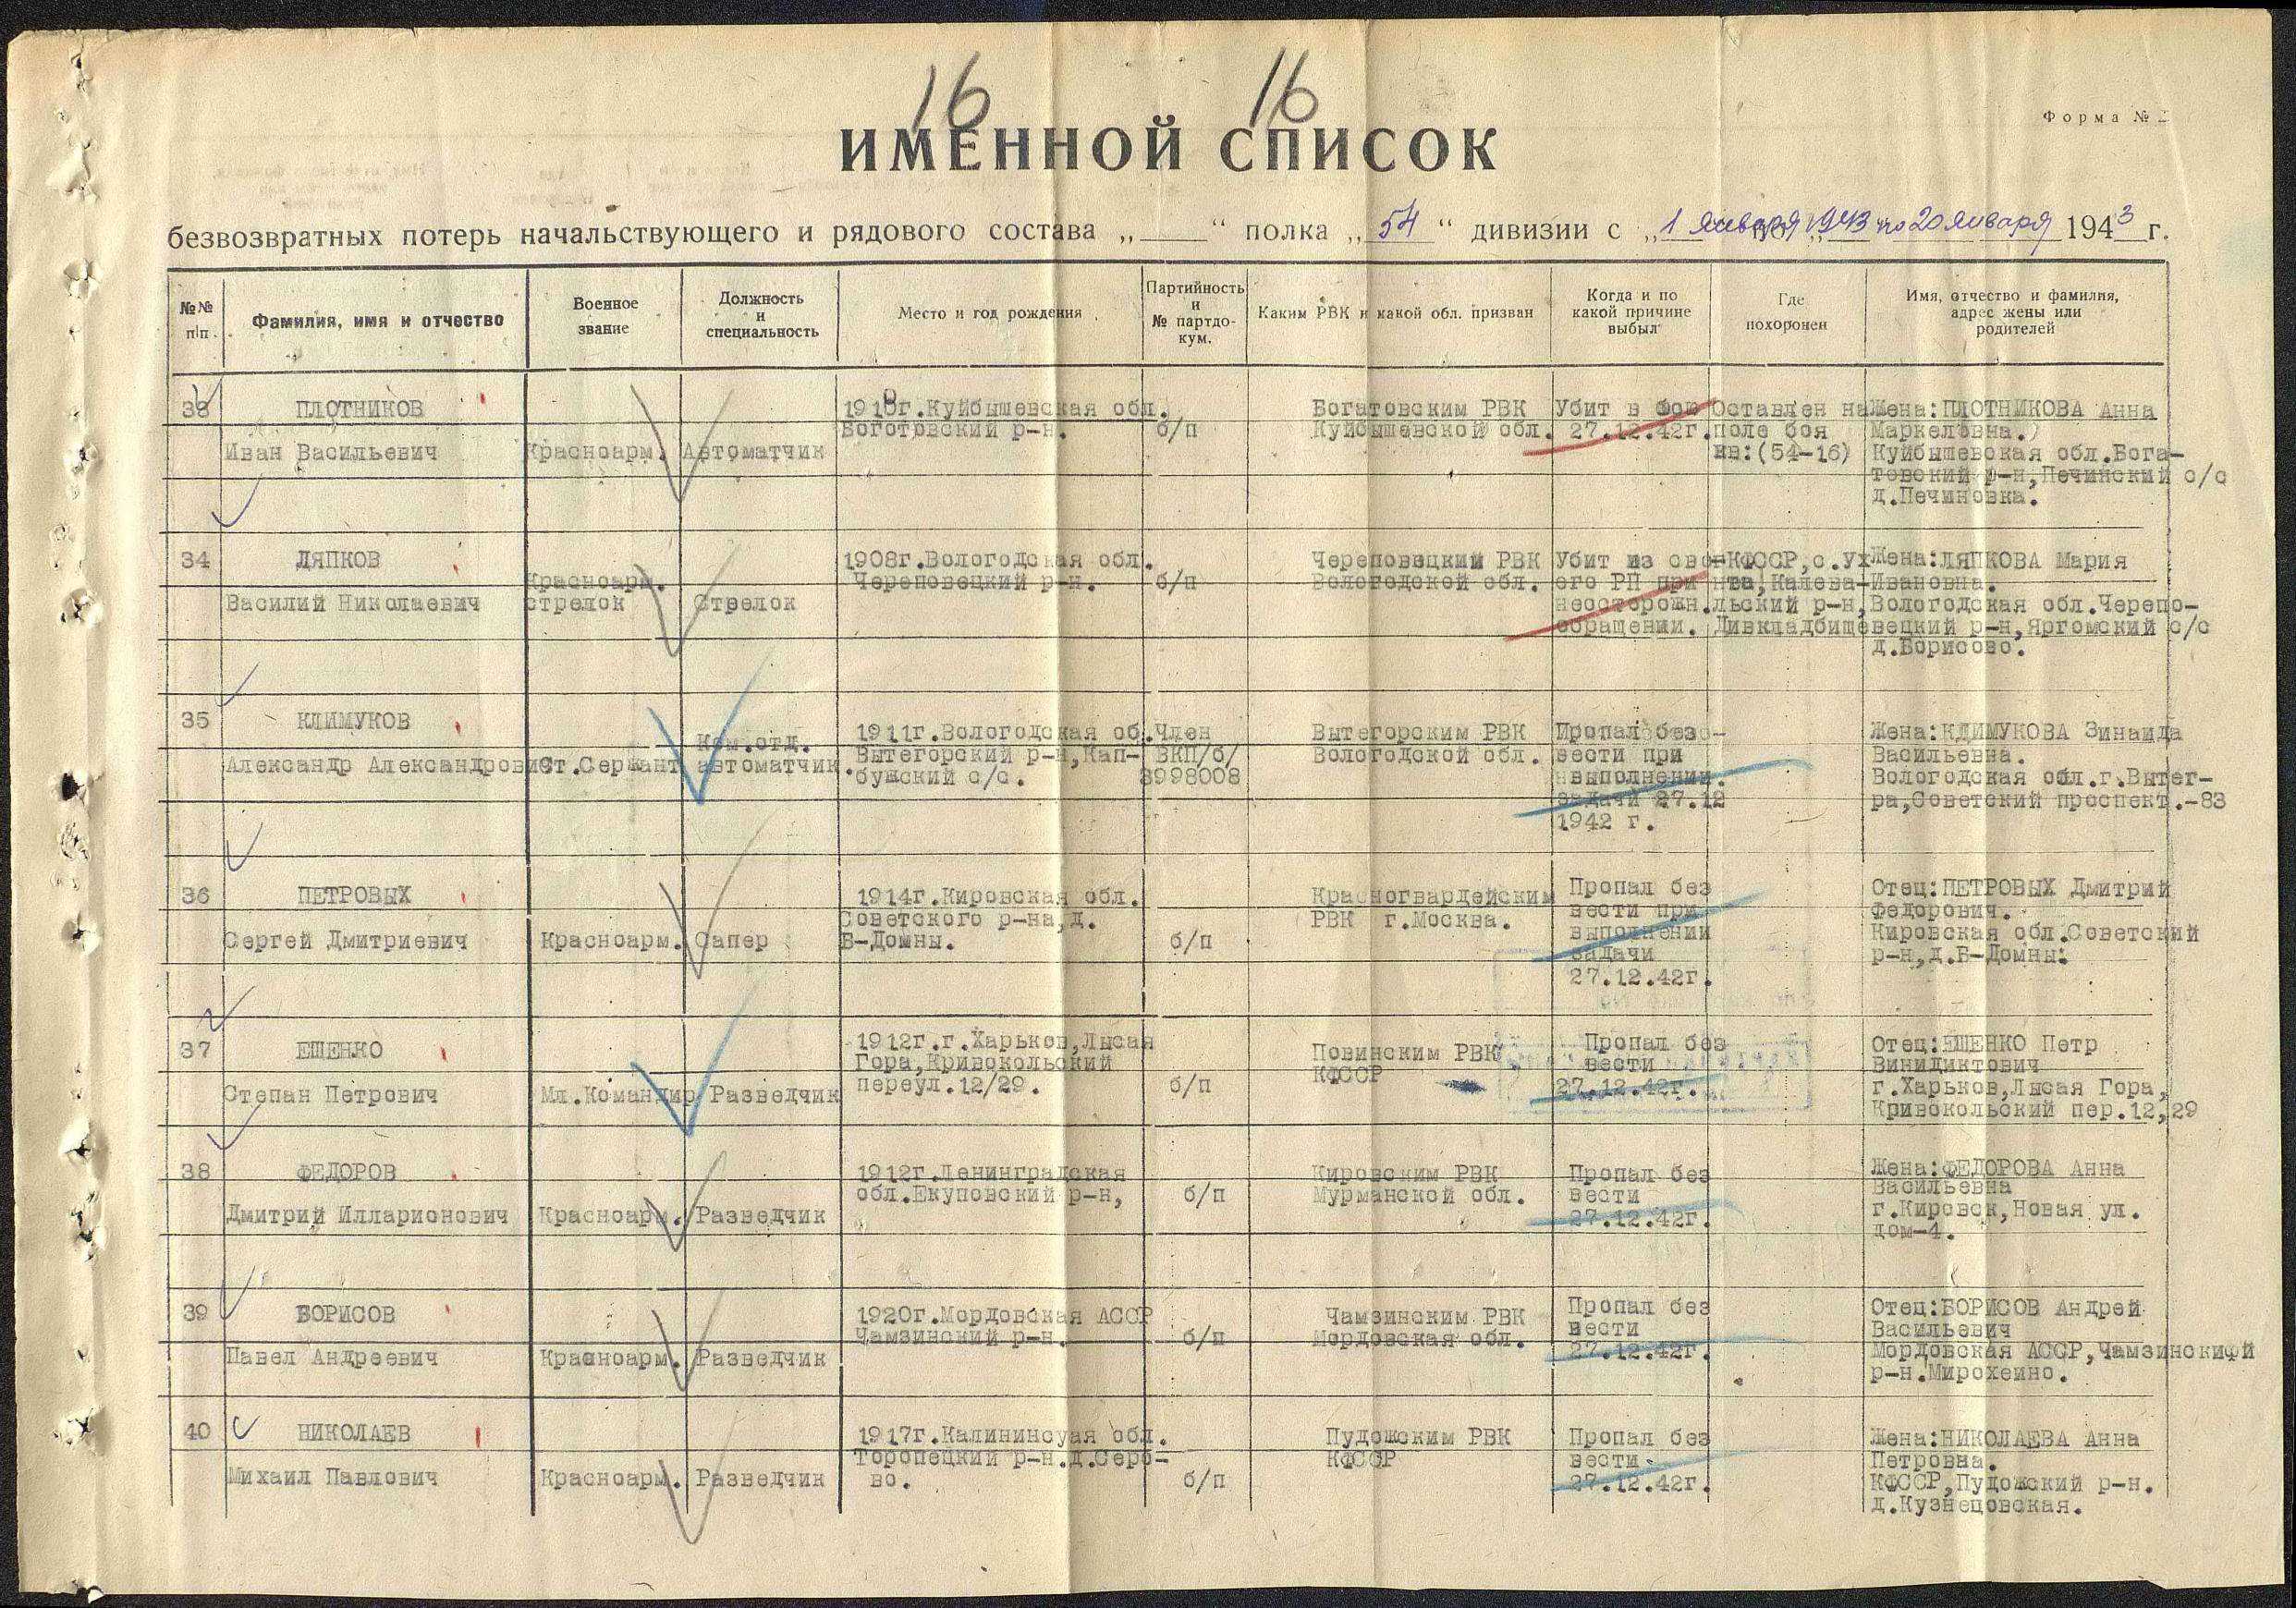 16 16
Форма №
ИМЕННОЙ СПИСОК
безвозвратных потерь начальствующего и рядового состава „ “ полка „ 54 “ дивизии с „ 1 января 1943 по 20 января 1943 г.
№№ п/п.
Фамилия, имя и отчество
Военное звание
Должность и специальность
Место и год рождения
Партийность и № партдокум.
Каким РВК и какой обл. призван
Когда и по какой причине выбыл
Где похоронен
Имя, отчество и фамилия, адрес жены или родителей
33
ПЛОТНИКОВ
Иван Васильевич
Красноарм.
Автоматчик
1918г.Куйбышевская обл.
Боготовский р-н.
б/п
Богатовским РВК
Куйбышевской обл.
Убит в бою
27.12.42г.
Оставлен на
поле боя
кв:(54-16)
Жена:ПЛОТНИКОВА Анна
Маркеловна.
Куйбышевская обл.Бога-
товский р-н,Печинский с/с
д.Печиновка.
34
ЛЯПКОВ
Василий Николаевич
Красноарм.
стрелок
Стрелок
1908г.Вологодская обл.
Череповецкий р-н.
б/п
Череповецким РВК
Вологодской обл.
Убит из сво-
его РП при
неосторожн.
обращении.
КФССР,с.Ух
нта,Калева-
льский р-н,
Дивкладбище
Жена:ЛЯПКОВА Мария
Ивановна.
Вологодская обл.Черепо-
вецкий р-н,Яргомский с/с
д.Борисово.
35
КЛИМУКОВ
Александр Александрович
Ст.Сержант
Ком.отд.
автоматчик.
1911г.Вологодская об.
Вытегорский р-н,Кап-
бушский с/с.
Член
ВКП/б/
3998008
Вытегорским РВК
Вологодской обл.
Пропал без
вести при
выполнении.
задачи 27.12
1942 г.
Жена:КЛИМУКОВА Зинаида
Васильевна.
Вологодская обл.г.Вытег-
ра,Советский проспект.-83
36
ПЕТРОВЫХ
Сергей Дмитриевич
Красноарм.
Сапер
1914г.Кировская обл.
Советского р-на,д.
Б-Домны.
б/п
Красногвардейским
РВК г.Москва.
Пропал без
вести при
выполнении
задачи
27.12.42г.
Отец:ПЕТРОВЫХ Дмитрий
Федорович.
Кировская обл.Советский
р-н,д.Б-Домны:
37
ЕЩЕНКО
Степан Петрович
Мл.Командир
Разведчик
1912г.г.Харьков,Лысая
Гора,Кривокольский
переул.12/29.
б/п
Повинским РВК
КФССР
Пропал без
вести
27.12.42г.
Отец:ЕЩЕНКО Петр
Винидиктович
г.Харьков,Лысая Гора,
Кривокольский пер.12,29
38
ФЕДОРОВ
Дмитрий Илларионович
Красноарм.
Разведчик
1912г.Ленинградская
обл.Екуповский р-н,
б/п
Кировским РВК
Мурманской обл.
Пропал без
вести
27.12.42г.
Жена:ФЕДОРОВА Анна
Васильевна
г.Кировск,Новая ул.
дом-4.
39
БОРИСОВ
Павел Андреевич
Красноарм.
Разведчик
1920г.Мордовская АССР
Чамзинский р-н.
б/п
Чамзинским РВК
Мордовская обл.
Пропал без
вести
27.12.42г.
Отец:БОРИСОВ Андрей
Васильевич
Мордовская АССР,Чамзинский
р-н.Мирохеино.
40
НИКОЛАЕВ
Михаил Павлович
Красноарм.
Разведчик
1917г.Калининсуая обл.
Торопецкий р-н.д.Серо-
во.
б/п
Пудожским РВК
КФССР
Пропал без
вести
27.12.42г.
Жена:НИКОЛАЕВА Анна
Петровна.
КФССР,Пудожский р-н.
д.Кузнецовская.